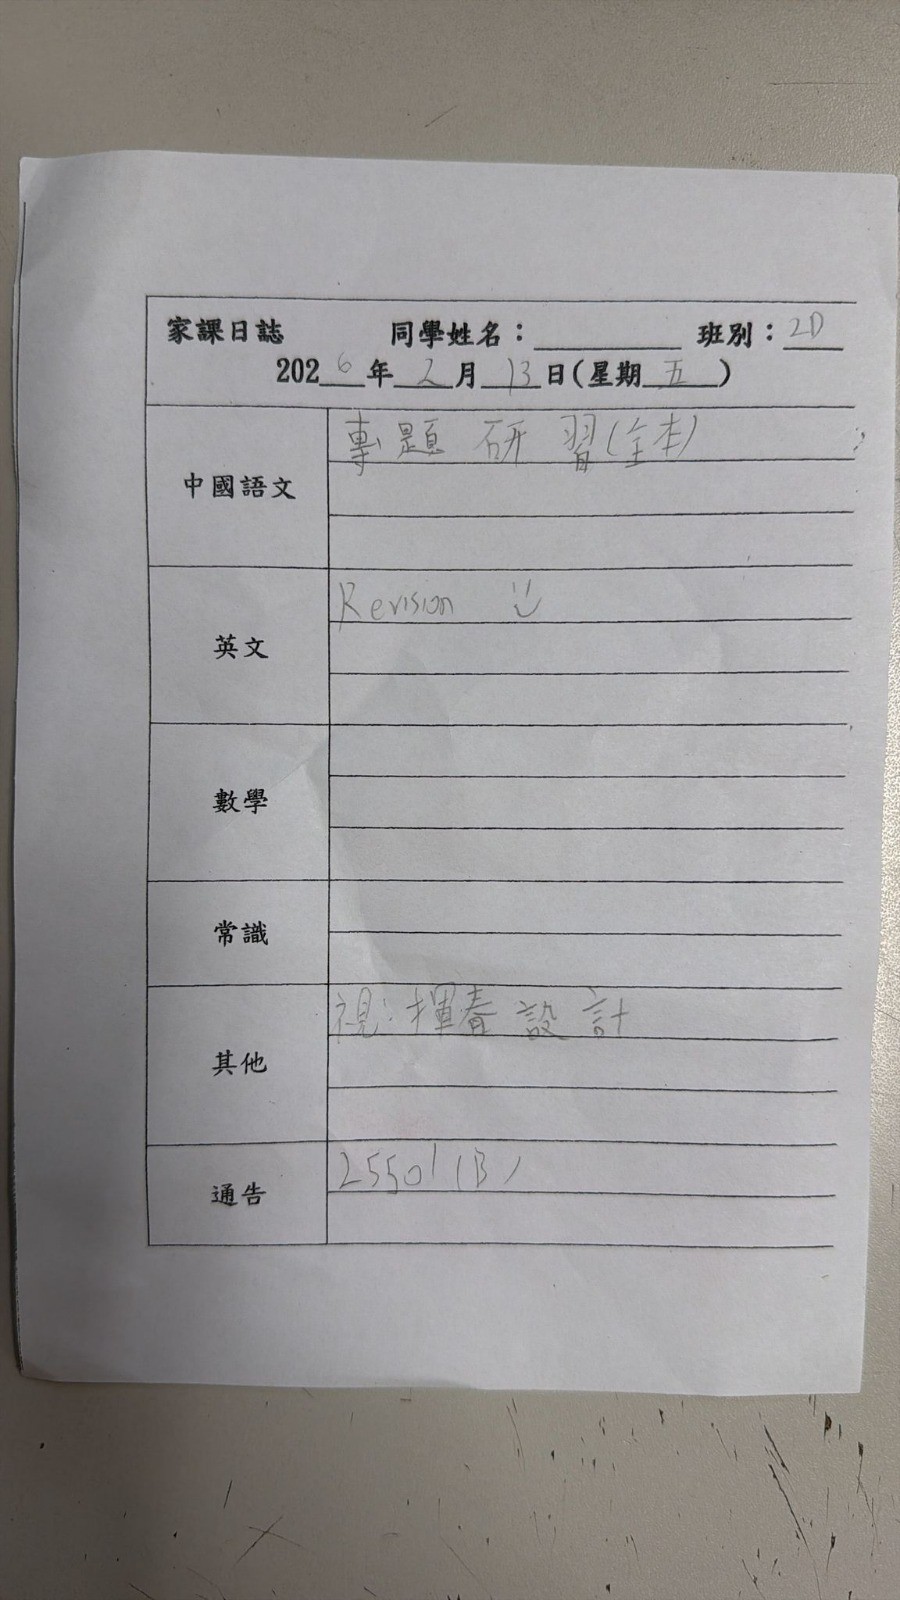 家課日誌 同學姓名：________ 班別：2D
2026年2月13日(星期五)
中國語文 專題研習(全本)
英文 Revision
數學
常識
其他 視：揮春設計
通告 25501(B)